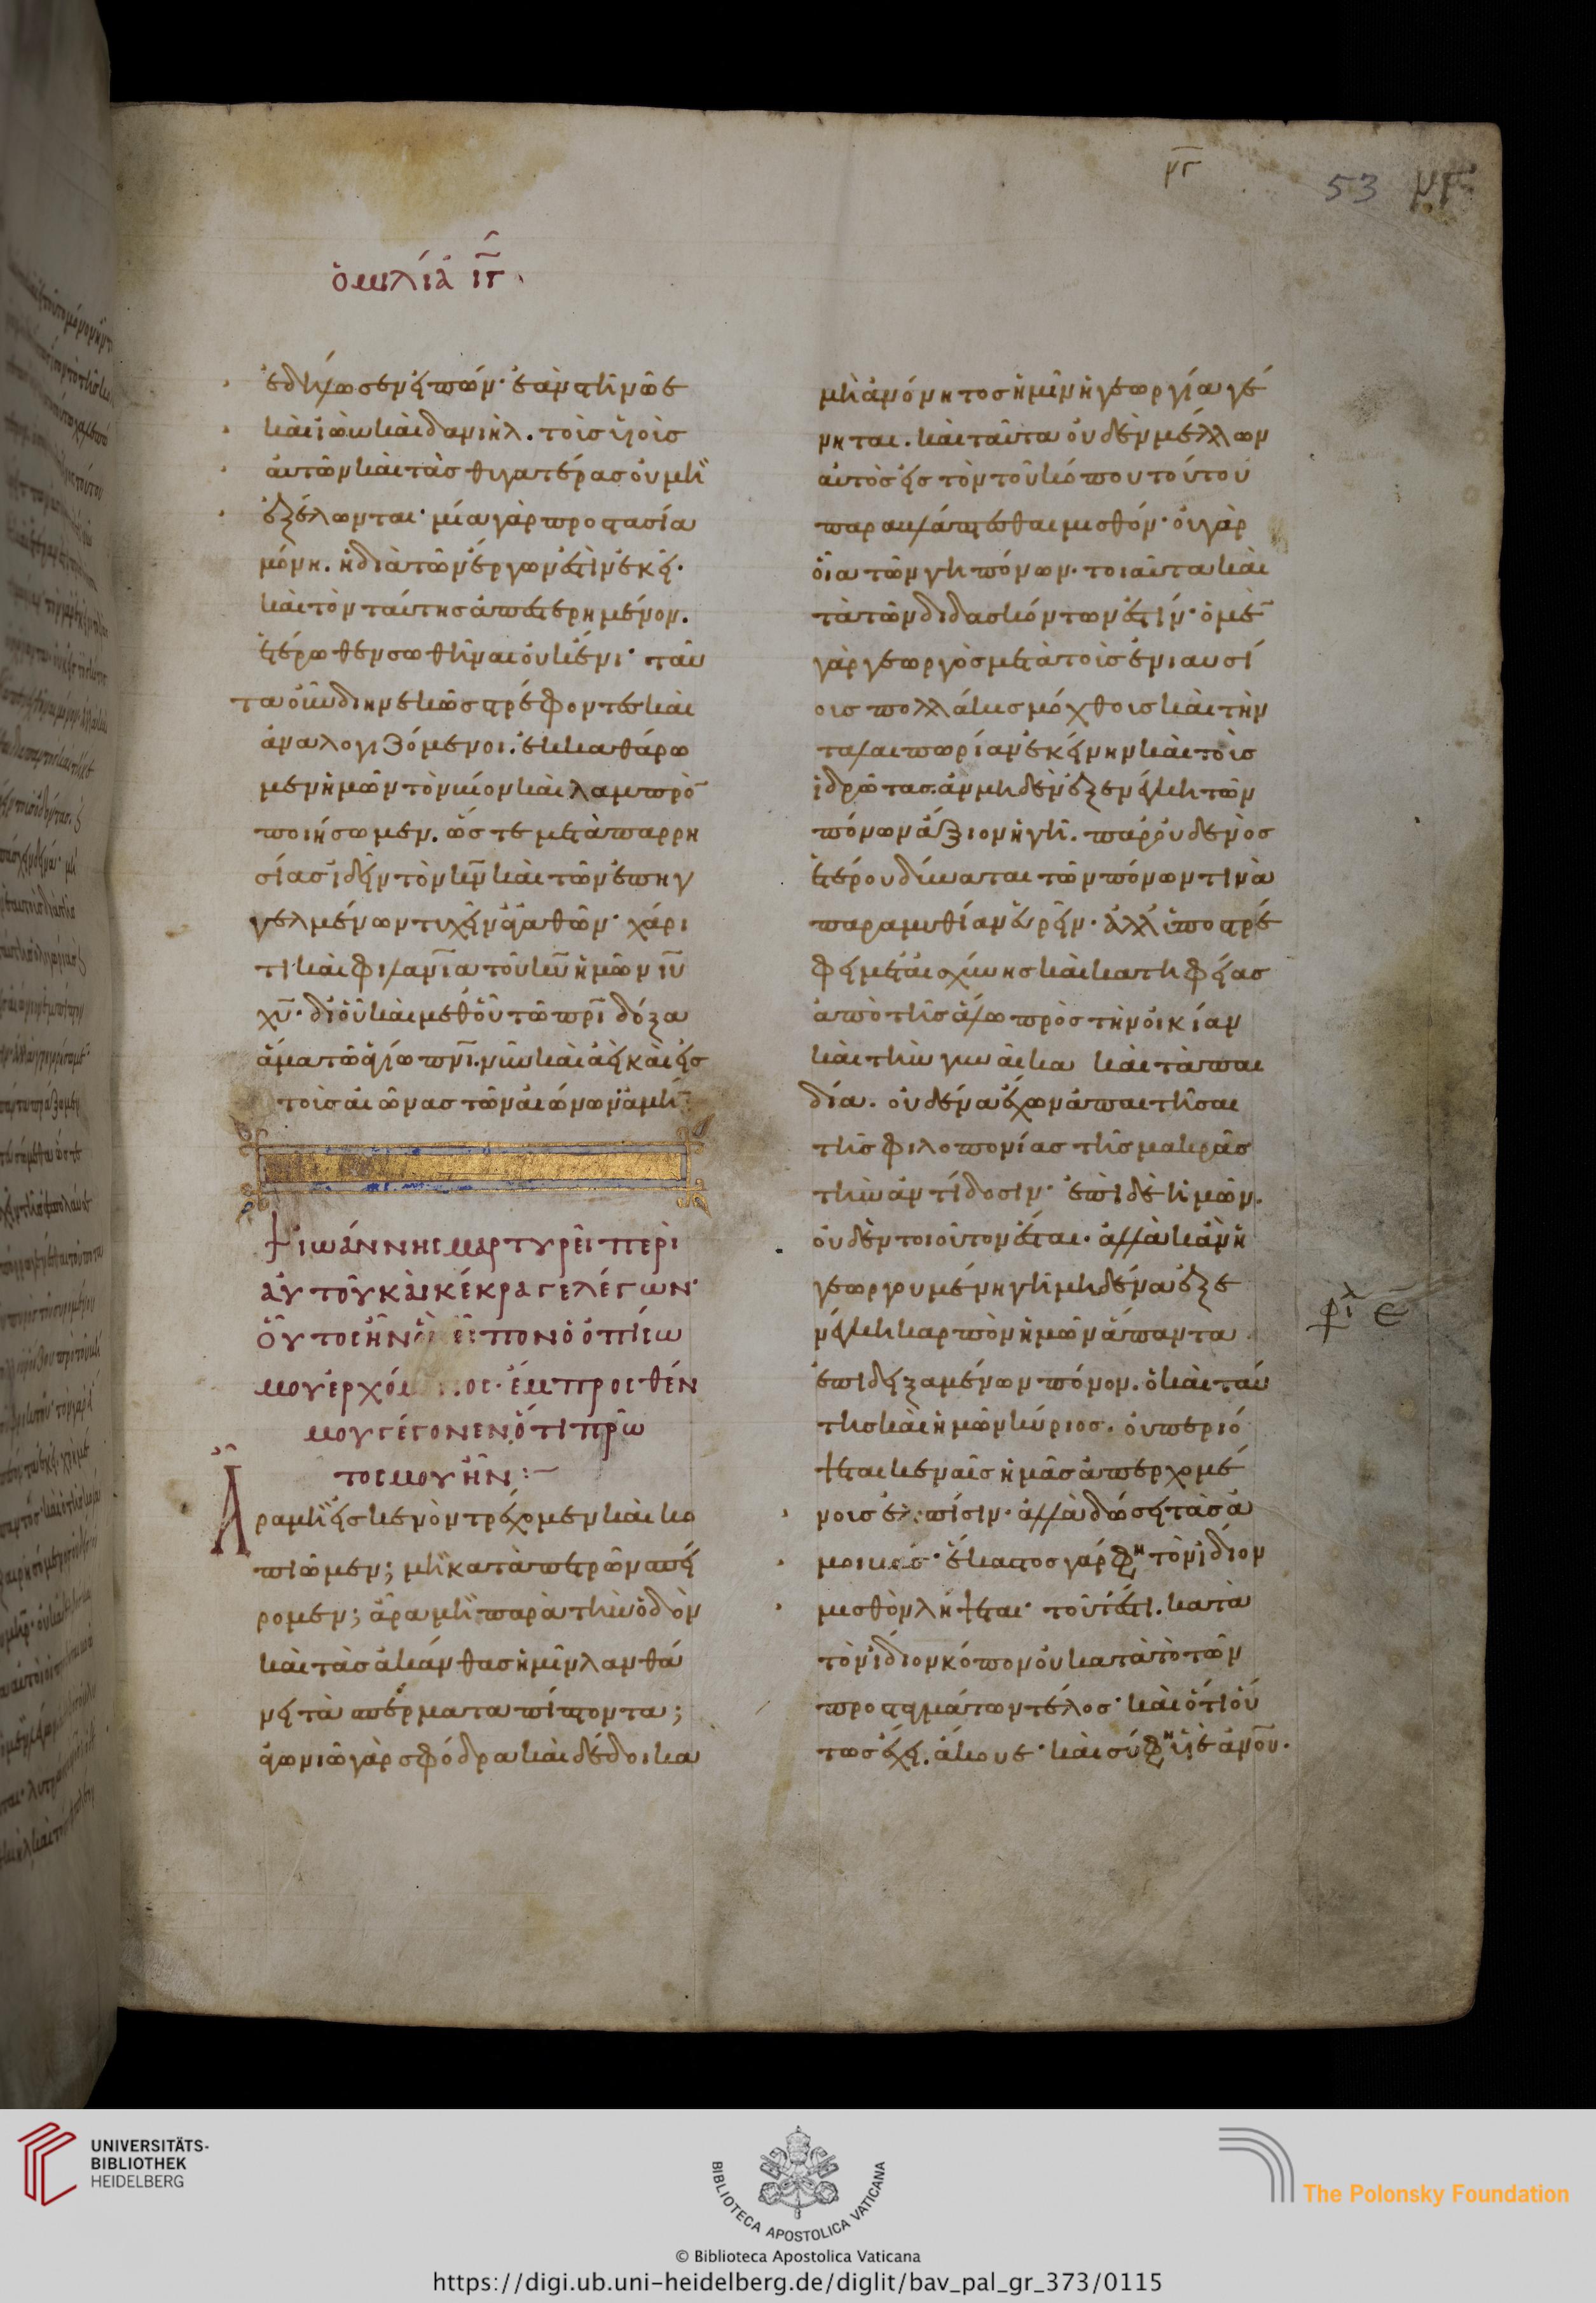 μγ
53 μγ
ὁμιλία ιγ
ἐδήλωσεν εἰπών· ἐὰν στῆ νῶε
καὶ ἰὼβ καὶ δανιήλ. τοὺς υἱοὺς
αὐτῶν καὶ τὰς θυγατέρας οὐ μὴ
ἐξέλωνται· μία γὰρ προστασία
μόνη. ἡ διὰ τῶν ἔργων ἐστὶν ἐκεῖ·
καὶ τὸν ταύτης ἀπεστερημένον.
ἑτέρωθεν σωθῆναι οὐκ ἔνι· ταῦ
τα οὖν διηνεκῶς στρέφοντες καὶ
ἀναλογιζόμενοι. ἐκκαθάρω
μεν ἡμῶν τὸν βίον καὶ λαμπρὸ̄
ποιήσωμεν. ὥστε μετὰ παρρη
σίας ἰδεῖν τὸν κ̄ν̄ καὶ τῶν ἐπηγ
γελμένων τυχεῖν ἀγαθῶν· χάρι
τι καὶ φιλαν̄ίᾱ τοῦ κ̄ῡ ἡμῶν ῑῡ
χ̄ῡ· δι' οὗ καὶ μεθ' οὗ τῶ π̄ρ̄ῑ δόξα
ἅμα τῶ ἁγίω π̄ν̄ῑ. νῦν καὶ ἀεὶ καὶ εἰς
τοὺς αἰῶνας τῶν αἰώνων ἀμήν:
ἰωάννης μαρτυρεῖ περὶ
αὐτοῦ καὶ κέκραγε λέγων·
οὗτος ἦν ὃν εἶπον ὁ ὀπίσω
μου ἐρχόμενος· ἔμπροσθέν
μου γέγονεν ὅτι πρῶ
τος μου ἦν:~
Ἆρα μὴ εἰς κενὸν τρέχομεν καὶ κο
πιῶμεν; μὴ κατὰ πετρῶν σπεί
ρομεν; ἆρα μὴ παρὰ τὴν ὁδὸν
καὶ τὰς ἀκάνθας ἡμῖν λανθά
νει τὰ σπέρματα πίπτοντα;
ἀγωνιῶ γὰρ σφόδρα καὶ δέδοικα
μὴ ἀνόνητος ἡμῖν ἡ γεωργία γέ
νηται. καὶ ταῦτα οὐδὲν μέλλων
αὐτὸς εἰς τὸν τοῦ κόπου τούτου
παραβλάπτεσθαι μισθόν· οὐ γὰρ
οἷα τῶν γηπόνων. τοιαῦτα καὶ
τὰ τῶν διδασκόντων ἐστίν· ὁ μὲ̄
γὰρ γεωργὸς μετὰ τοὺς ἐνιαυσί
ους πολλάκις μόχθους καὶ τὴν
ταλαιπωρίαν ἐκείνην καὶ τοὺς
ἱδρῶτας. ἂν μηδὲν ἐξενέγκη τῶν
πόνων ἄξιον ἡ γῆ. παρ' οὐδενὸς
ἑτέρου δύναται τῶν πόνων τινὰ
παραμυθίαν εὑρεῖν· ἀλλ' ὑποστρέ
φει μετ' αἰσχύνης καὶ κατηφείας
ἀπὸ τῆς ἅλω πρὸς τὴν οἰκίαν
καὶ τὴν γυναῖκα καὶ τὰ παι
δία. οὐδένα ἔχων ἀπαιτῆσαι
τῆς φιλοπονίας τῆς μακρᾶς
τὴν ἀντίδοσιν· ἐπὶ δὲ ἡμῶν.
οὐδὲν τοιοῦτον ἔσται. ἀλλὰ κἂν ἡ
γεωργουμένη γῆ μηδένα ἐξε
νέγκη καρπὸν ἡμῶν ἅπαντα
ἐπιδειξαμένων πόνον. ὁ καὶ ταύ
της καὶ ἡμῶν κύριος. οὐ περιό
ψεται κεναῖς ἡμᾶς ἀπερχομέ
νους ἐλπίσιν· ἀλλὰ δώσει τὰς ἀ
μοιβάς· ἕκαστος γάρ φη τὸν ἴδιον
μισθὸν λήψεται· τουτέστι. κατὰ
τὸν ἴδιον κόπον οὐ κατὰ τὸ τῶν
πραγμάτων τέλος· καὶ ὅτι οὕ
τως ἔχει. ἄκουε· καὶ σύ φη υἱὲ ἀν̄ο̄ῡ.
UNIVERSITÄTS-
BIBLIOTHEK
HEIDELBERG
BIBLIOTECA APOSTOLICA VATICANA
The Polonsky Foundation
© Biblioteca Apostolica Vaticana
https://digi.ub.uni-heidelberg.de/diglit/bav_pal_gr_373/0115